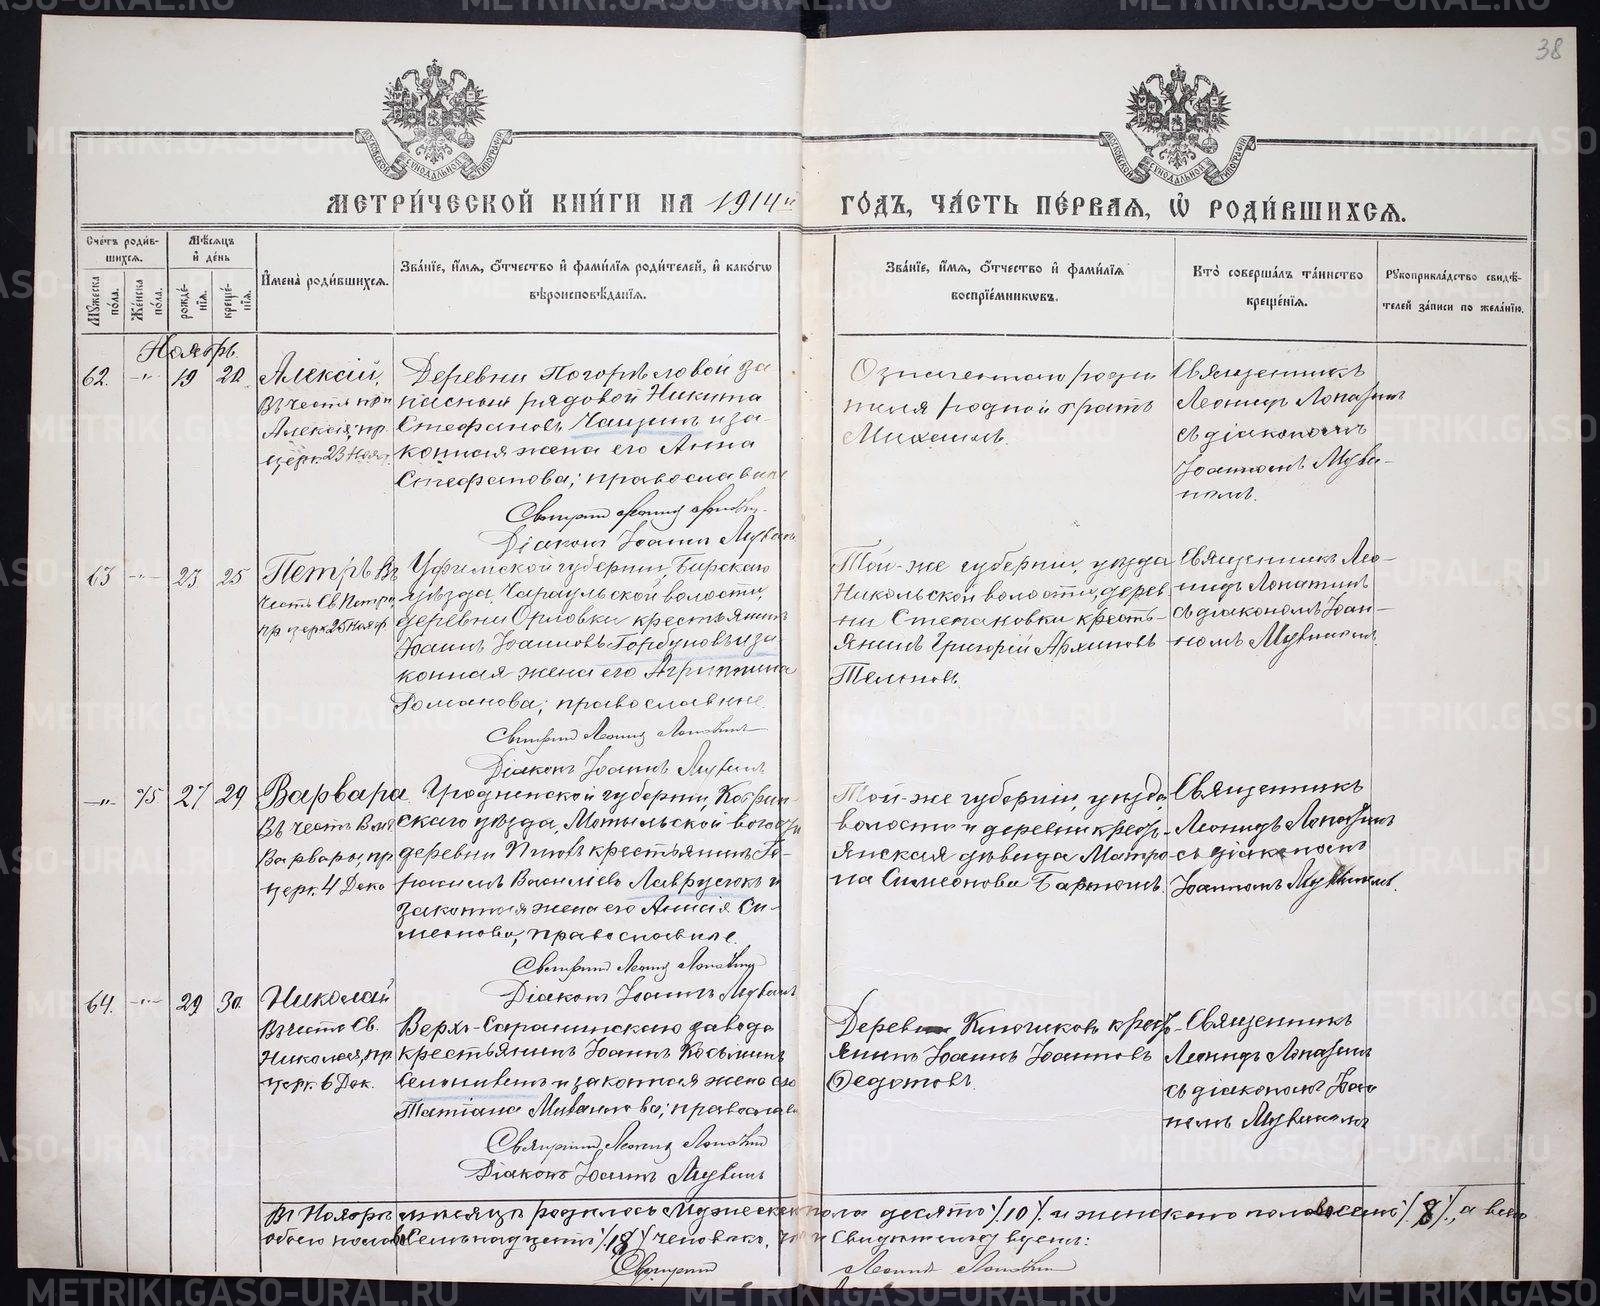 38
МОСКОВСКОЙ СѴНОДАЛЬНОЙ ТИПОГРАФІИ
МОСКОВСКОЙ СѴНОДАЛЬНОЙ ТИПОГРАФІИ
МЕТРИ́ЧЕСКОЙ КНИ́ГИ НА 1914й ГО́ДЪ, ЧА́СТЬ ПЕ́РВАѦ, Ѡ҆ РОДИ́ВШИХСѦ.
Сче́тъ роди́в-
шихсѧ.
Мꙋ́жеска по́ла.
Же́нска по́ла.
Мѣ́сѧцъ и҆ де́нь
рожде́-нїѧ.
креще́-нїѧ.
И҆мена̀ роди́вшихсѧ.
Зва́нїе, и҆́мѧ, ѻ҆́тчество и҆ фами́лїѧ роди́телей, и҆ како́гѡ
вѣроисповѣ́данїѧ.
Зва́нїе, и҆́мѧ, ѻ҆́тчество и҆ фами́лїѧ
воспрїе́мниковъ.
Кто̀ соверша́лъ та́инство
креще́нїѧ.
Рꙋкоприкла́дство свидѣ́-
телей за́писи по жела́нїю.
Ноябрь.
62. -„- 19 20
Алексій,
Въ честь пр
Алексія, пр.
церк. 23 Нояб.
Деревни Погорѣловой за
пасный рядовой Никита
Стефановъ Чащинъ и за-
конная жена его Анна
Стефанова; православные
Священникъ Леонидъ Лопатинъ
Діаконъ Іоаннъ Мувинъ
Означеннаго роди
теля родной братъ
Михаилъ.
Священникъ
Леонидъ Лопатинъ
съ діакономъ
Іоанномъ Муви-
номъ.
63 -„- 23 25
Петръ Въ
честь Св. Петра,
пр церк. 25 Нояб.
Уфимской губерніи, Бирскаго
уѣзда, Чараульской волости,
деревни Орловки крестьянинъ
Іоаннъ Іоанновъ Горбуновъ и за
конная жена его Агриппина
Романова; православные.
Священникъ Леонидъ Лопатинъ
Діаконъ Іоаннъ Мувинъ
Той-же губерніи, уѣзда
Никольской волости, дерев
ни Степановки кресть-
янинъ Григорій Архиповъ
Теленовъ.
Священникъ Лео-
нидъ Лопатинъ
съ діакономъ Іоан-
номъ Мувинымъ.
-„- 75 27 29
Варвара
Въ честь Вмц
Варвары, пр
церк. 4 Дека
Гродненской губерніи, Кобрин-
скаго уѣзда, Мотыльской волости
деревни крестьянинъ Ге-
расимъ Василіевъ Лаврусюкъ и
законная жена его Анисія Си-
меонова, православные.
Священникъ Леонидъ Лопатинъ
Діаконъ Іоаннъ Мувинъ
Той-же губерніи, уѣзда,
волости и деревни кресть-
янская дѣвица Матро
на Симеонова Бартошъ.
Священникъ
Леонидъ Лопатинъ
съ діакономъ
Іоанномъ Мувинымъ.
64. -„- 29 30
Николай
Въ честь Св.
Николая, пр
церк. 6 Дек.
Верхъ-Саранинскаго завода
крестьянинъ Іоаннъ Косьминъ
и законная жена его
Татіана Михаилова; православн
Священникъ Леонидъ Лопатинъ
Діаконъ Іоаннъ Мувинъ
Деревни Ключиковъ кресть-
янинъ Іоаннъ Іоанновъ
Ѳедотовъ.
Священникъ
Леонидъ Лопатинъ
съ діакономъ Іоан
номъ Мувинымъ
Въ Ноябрѣ мѣсяцѣ родилось Мужескаго пола десять /10/. и женскаго пола восемь /8/., а всего
обоего пола восемьнадцать /18/ человѣкъ, что и свидѣтельствуемъ:
Священникъ Леонидъ Лопатинъ
METRIKI.GASO-URAL.RU